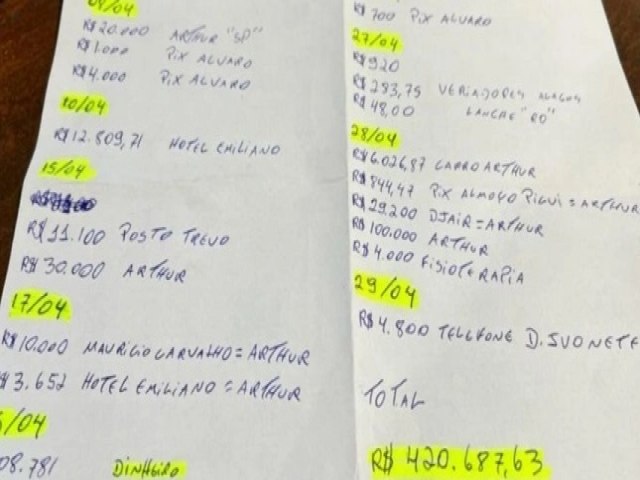 04/04
R$20.000 ARTHUR "SP"
R$1.000 PIX ALVARO
R$4.000 PIX ALVARO
10/04
R$12.809,71 HOTEL EMILIANO
15/04
R$11.100 POSTO TREVO
R$30.000 ARTHUR
17/04
R$10.000 MAURICIO CARVALHO = ARTHUR
R$3.652 HOTEL EMILIANO = ARTHUR
/04
08.781 DINHEIRO
R$700 PIX ALVARO
27/04
R$920
R$283,75 VERIADORES
R$48,00 LANCHE "RO"
28/04
R$6.026,87 CARRO ARTHUR
R$844,47 PIX ALMOÇO PIGUI = ARTHUR
R$29.200 DJAIR = ARTHUR
R$100.000 ARTHUR
R$4.000 FISIOTERAPIA
29/04
R$4.800 TELEFONE D. IVONETE
TOTAL
R$420.687,63